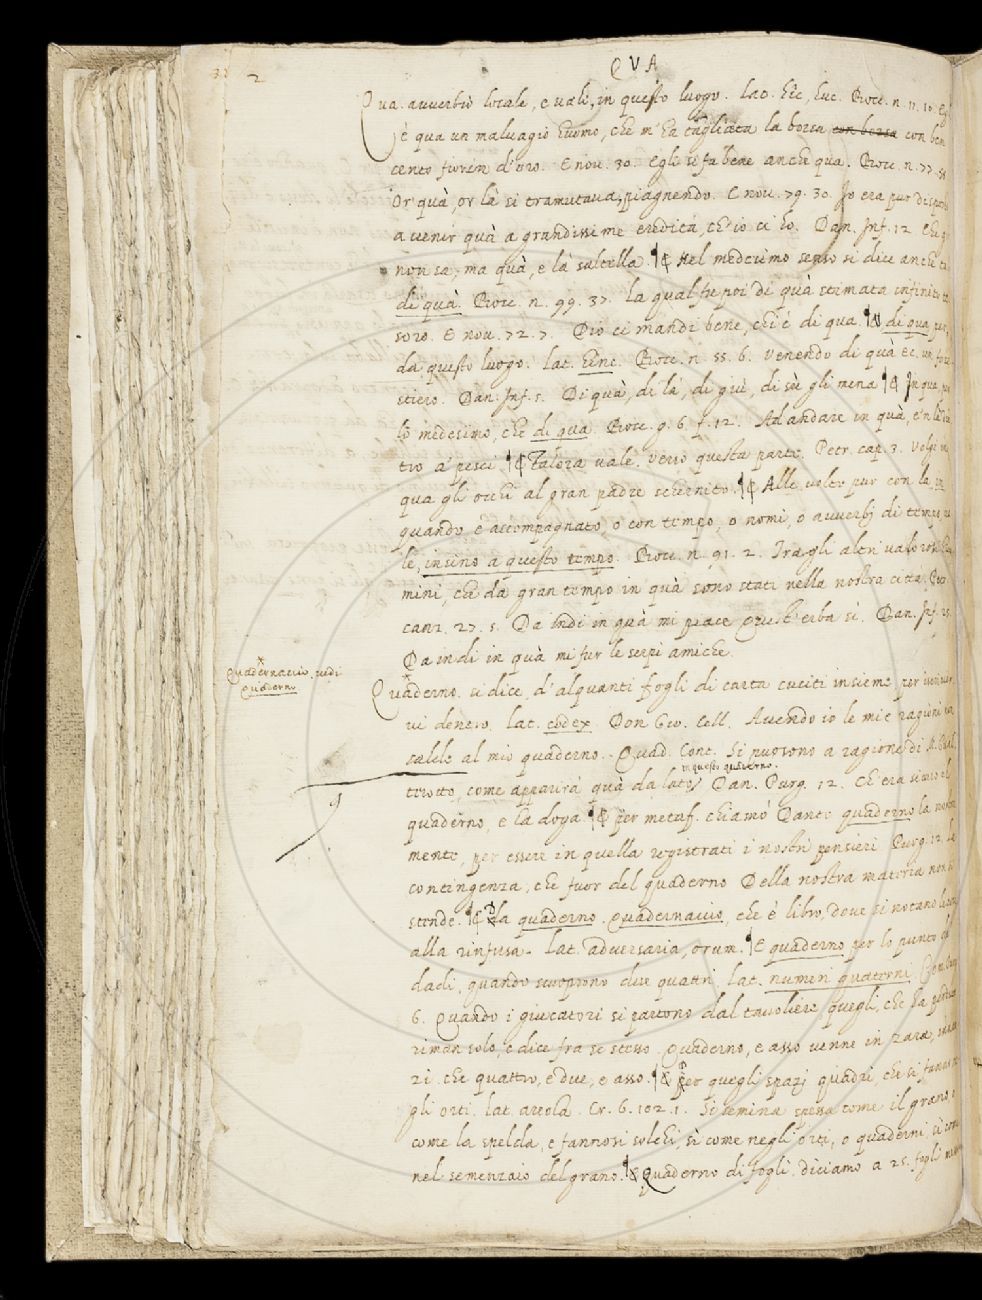 2
QVA
Qua. avverbio locale, e vale, in questo luogo. lat. hîc, huc. Bocc. n. 11. 10. Egli
è qua un malvagio huomo, che m'ha tagliata la borsa con borsa con ben
cento fiorin d'oro. E nov. 30. Egli si fa bene anche qua. Bocc. n. 77.
Or quà, or là si tramutava piagnendo. E nov. 79. 30. Io era pur disposto
a venir quà a grandissime eredità, ch'io ci ho. Dan. Inf. 12. Che
non sa; ma quà, e là saltella. ¶ & Nel medesimo senso si dice anche
di quà. Bocc. n. 99. 37. la qual fu poi di quà stimata infinito te
soro. E nov. 72. 7. Dio ci mandi bene, chi è di qua. ¶ & di qua, per,
da questo luogo. lat. hinc. Bocc. n. 55. 6. Venendo di quà ec. un fore
stiero. Dan. Inf. 5. Di quà, di là, di giù, di sù gli mena ¶ & In qua,
lo medesimo, che di qua. Bocc. g. 6. f. 12. Ad andare in quà, e'n là
tro a' pesci ¶ & Talora vale. verso questa parte. Petr. cap. 3. Volgi in
qua gli occhi al gran padre schernito. ¶ & Alle volte pur con la in
quando è accompagnato, o con tempo, o nomi, o avverbj di tempo, va
le, insino a questo tempo. Bocc. n. 91. 2. Tra gli altri valorosi
mini, che da gran tempo in quà sono stati nella nostra città. Petr.
canz. 27. 5. Da indi in quà mi piace Quest'erba sì. Dan. Inf. 25.
Da indi in quà mi fur le serpi amiche.
Quadernaccio. vedi
Quaderno
Quaderno. si dice, d'alquanti fogli di carta cuciti insieme per iscriver
vi dentro. lat. codex. Don Gio. Cell. Avendo io le mie ragioni
saldo al mio quaderno. Quad. Cont. Si puosono a ragione di
in questo quaderno.
trotto, come apparirà quà da lato. Dan. Purg. 12. Ch'era sicuro il
quaderno, e la doga. ¶ & per metaf. chiamò Dante quaderno la nostra
mente, per essere in quella registrati i nostri pensieri Purg. 12. la
contingenza, che fuor del quaderno Della nostra materia non si
stende. ¶ & Da quaderno. Quadernaccio, che è libro, dove si notano le cose
alla rinfusa. Lat. adversaria, orum. ¶ E quaderno per lo punto de'
dadi, quando scuoprono due quattri. Lat. numeri quaterni
6. Quando i giucatori si partono dal tavoliere quegli, che ha perduto
riman solo, e dice fra se stesso. Quaderno, e asso venne in zara,
ri. che quattro, e due, e asso. ¶ & per quegli spazj quadri, che si fanno ne
gli orti. lat. areola. Cr. 6. 102. 1. Si semina spessa come il grano,
come la spelda, e fannosi solchi, sì come negli orti, o quaderni, sì come
nel semenzaio del grano. ¶ & Quaderno di fogli, diciamo a 25. fogli